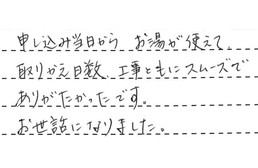 申し込み当日から お湯が使えて、
取りかえ日数、工事ともにスムーズで
ありがたかったです。
お世話になりました。